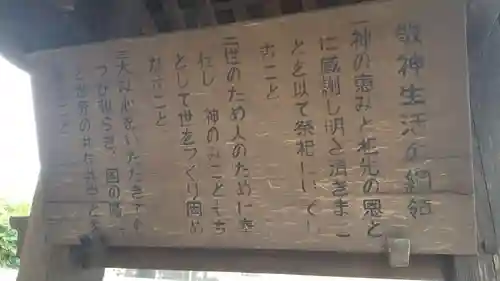 敬神生活の綱領
一神の恵みと祖先の恩と
に感謝し明き清きまこ
とを以て祭祀にいそし
むこと
二世のため人のために奉
仕し 神のみこともち
として世をつくり固め
なすこと
三大み心をいただきてむ
つび和らぎ 国の隆
と世界の共存共栄とを
こと